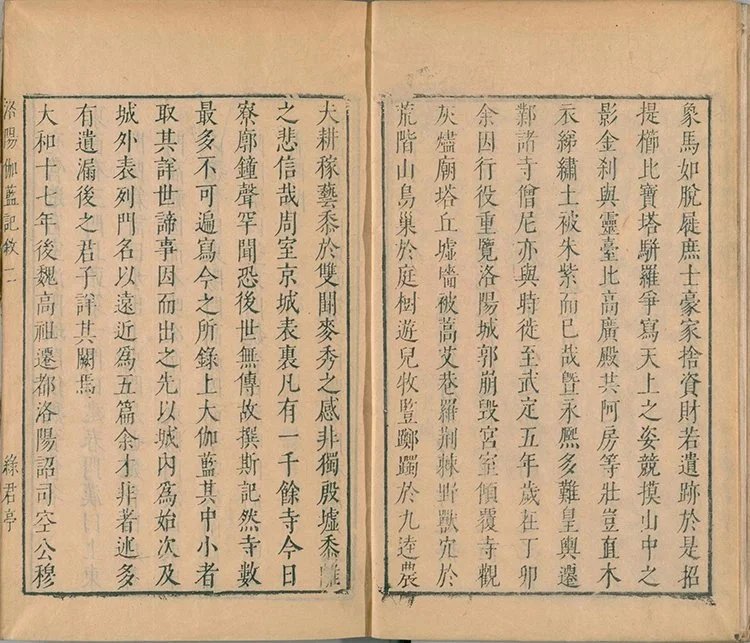 象馬如脫屣庶士豪家捨資財若遺跡於是招
提櫛比寶塔駢羅爭寫天上之姿競摸山中之
影金刹與靈臺比高廣殿共阿房等壯豈直木
衣綈繡土被朱紫而已哉曁永熙多難皇輿遷
鄴諸寺僧尼亦與時徙至武定五年歲在丁卯
余因行役重覽洛陽城郭崩毀宮室傾覆寺觀
灰燼廟塔丘墟墻被蒿艾巷羅荆棘野獸穴於
荒階山鳥巢於庭樹遊兒牧豎躑躅於九逵農
夫耕稼藝黍於雙闕麥秀之感非獨殷墟黍離
之悲信哉周室京城表裏凡有一千餘寺今日
寮廓鐘聲罕聞恐後世無傳故撰斯記然寺數
最多不可遍寫今之所錄上大伽藍其中小者
取其詳世諦事因而出之先以城內爲始次及
城外表列門名以遠近爲五篇余才非著述多
有遺漏後之君子詳其闕焉
大和十七年後魏高祖遷都洛陽詔司空公穆
洛陽伽藍記敘 二 綠君亭